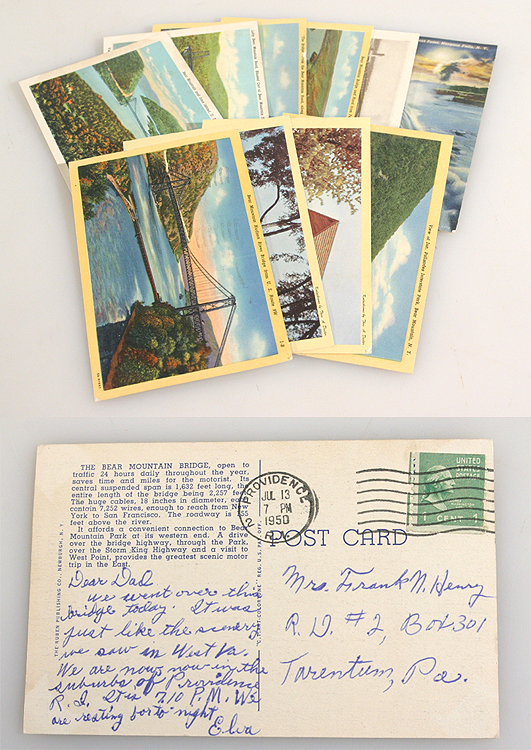 Bear Mountain Hudson River Bridge from U. S. Route 9W
THE BEAR MOUNTAIN BRIDGE, open to
traffic 24 hours daily throughout the year,
saves time and miles for the motorist. Its
central suspended span is 1,632 feet long, the
entire length of the bridge being 2,257 feet.
The huge cables, 18 inches in diameter, each
contain 7,252 wires, enough to reach from New
York to San Francisco. The roadway is 155
feet above the river.
It affords a convenient connection to Bear
Mountain Park at its western end. A drive
over the bridge highway, through the Park,
over the Storm King Highway and a visit to
West Point, provides the greatest scenic motor
trip in the East.
THE RUBEN PUBLISHING CO., NEWBURGH, N. Y.
Dear Dad
We went over this
bridge today. It was
just like the scenery
we saw in West Va.
We are now now in the
suburbs of Providence
R. I. It is 7:10 P. M. We
are resting for to night
Elva
PROVIDENCE
JUL 13
7 PM
1950
R. I.
2
UNITED
STATES
POSTAGE
1 CENT
POST CARD
REG. U. S. PAT. OFF.
Mrs. Frank N. Henry
R. D. #2, Box 301
Tarentum, Pa.